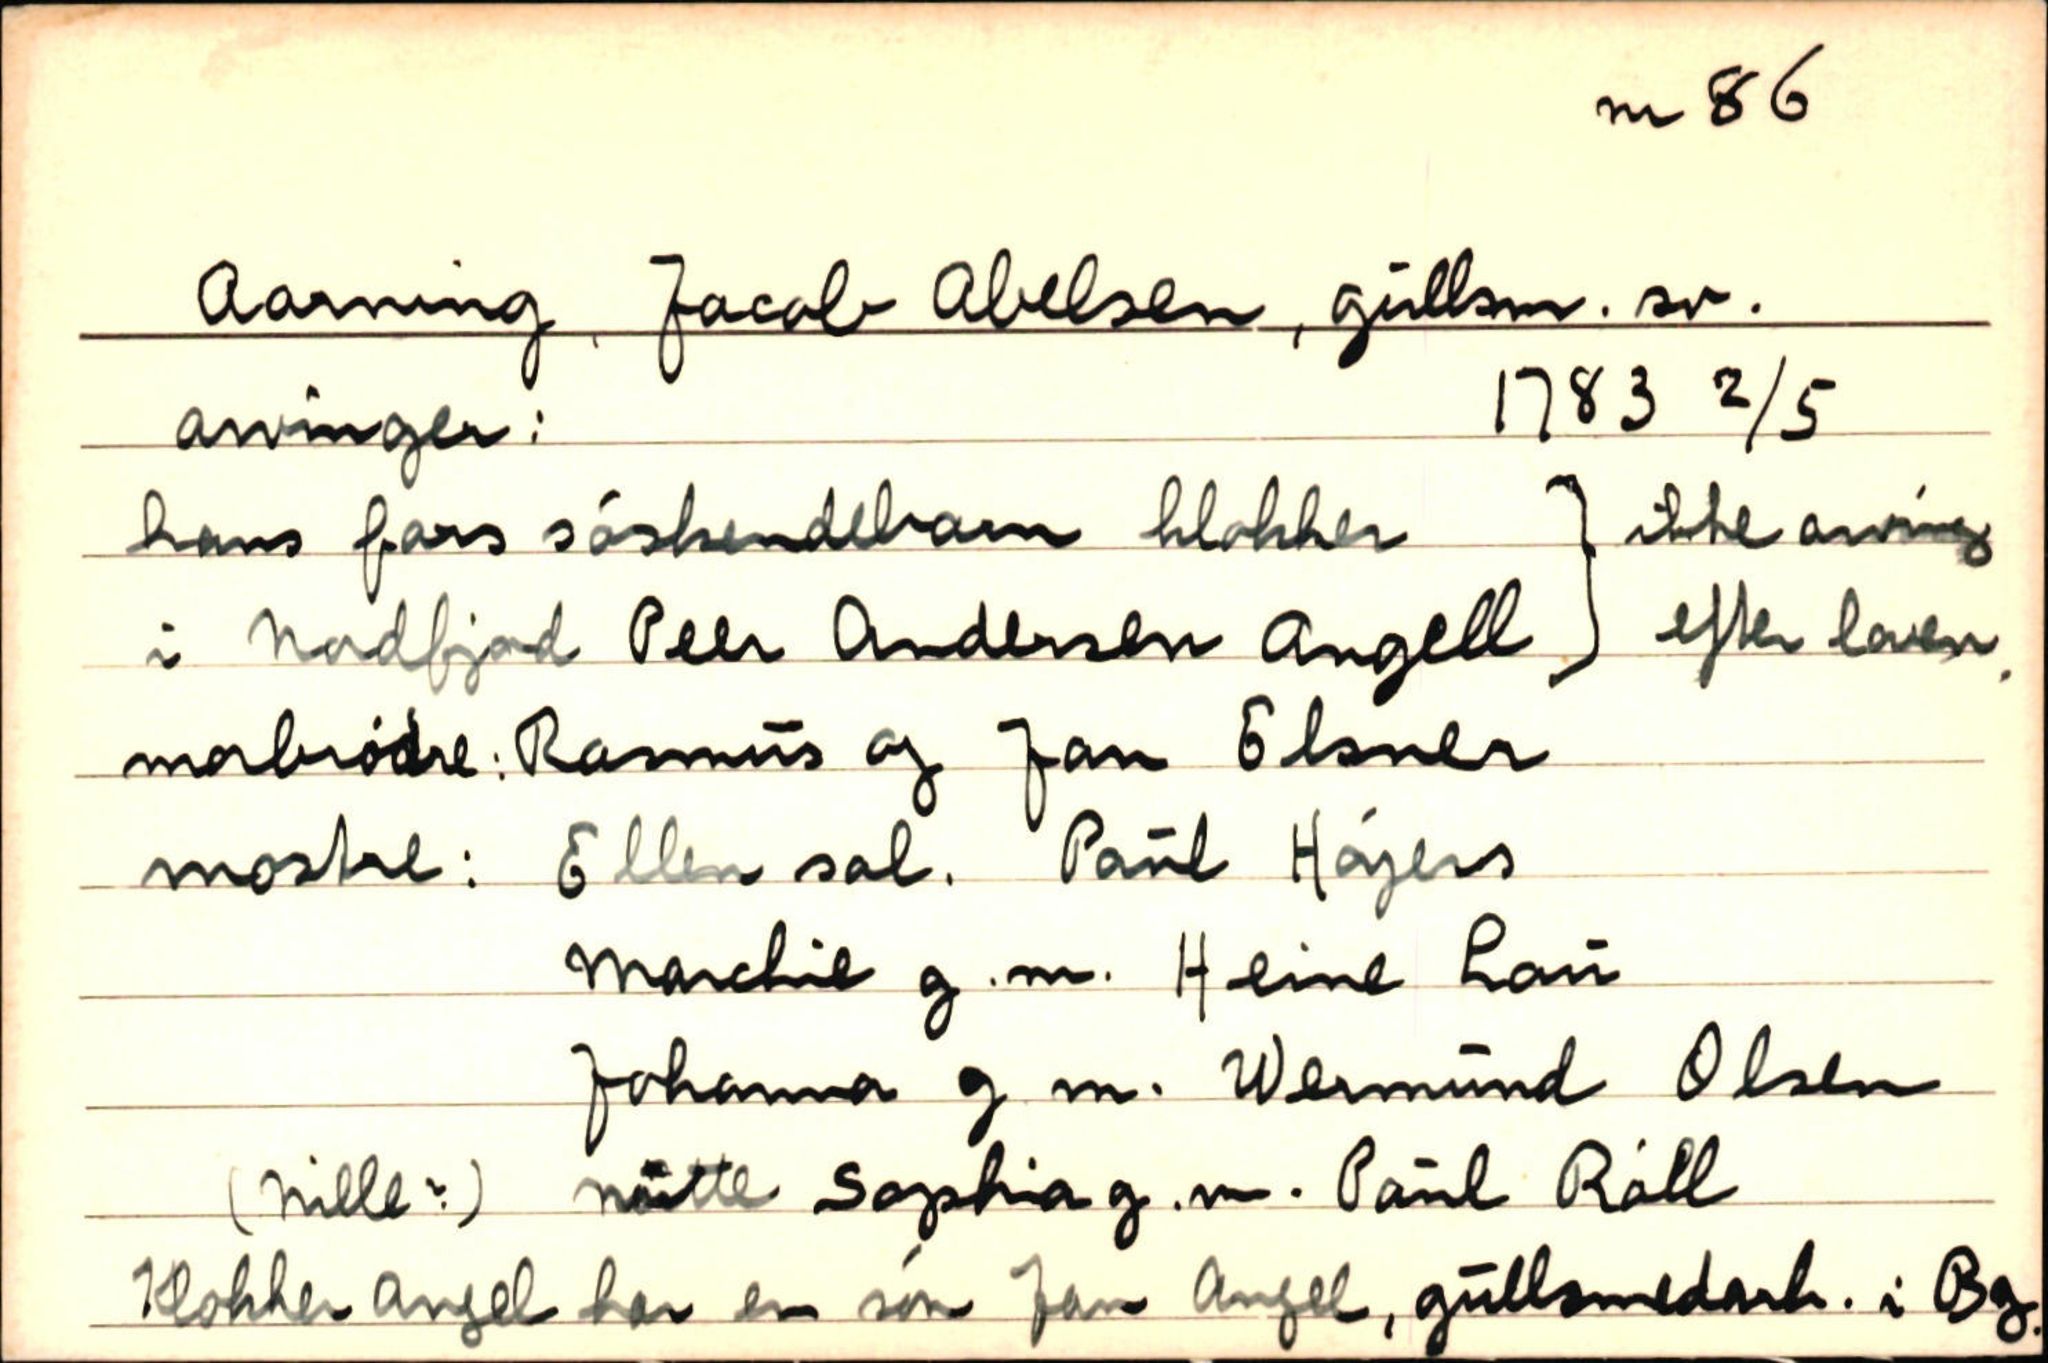 m 86
Aarning, Jacob Abelsen, gullsm. sv.
arvinger: 1783 2/5
hans fars söskendebarn klokker } ikke arving
i Nordfjord Peer Andersen Angell } efter loven.
morbrödre: Rasmus og Jan Elsner
mostre: Ellen sal. Paul Höyers
Marchie g.m. Heine Lau
Johanna g m. Wermund Olsen
(Nille?) Nütte Sophia g.m. Paul Röll
Klokker Angel har en sön Jan Angel, gullsmedarb. i Bg.